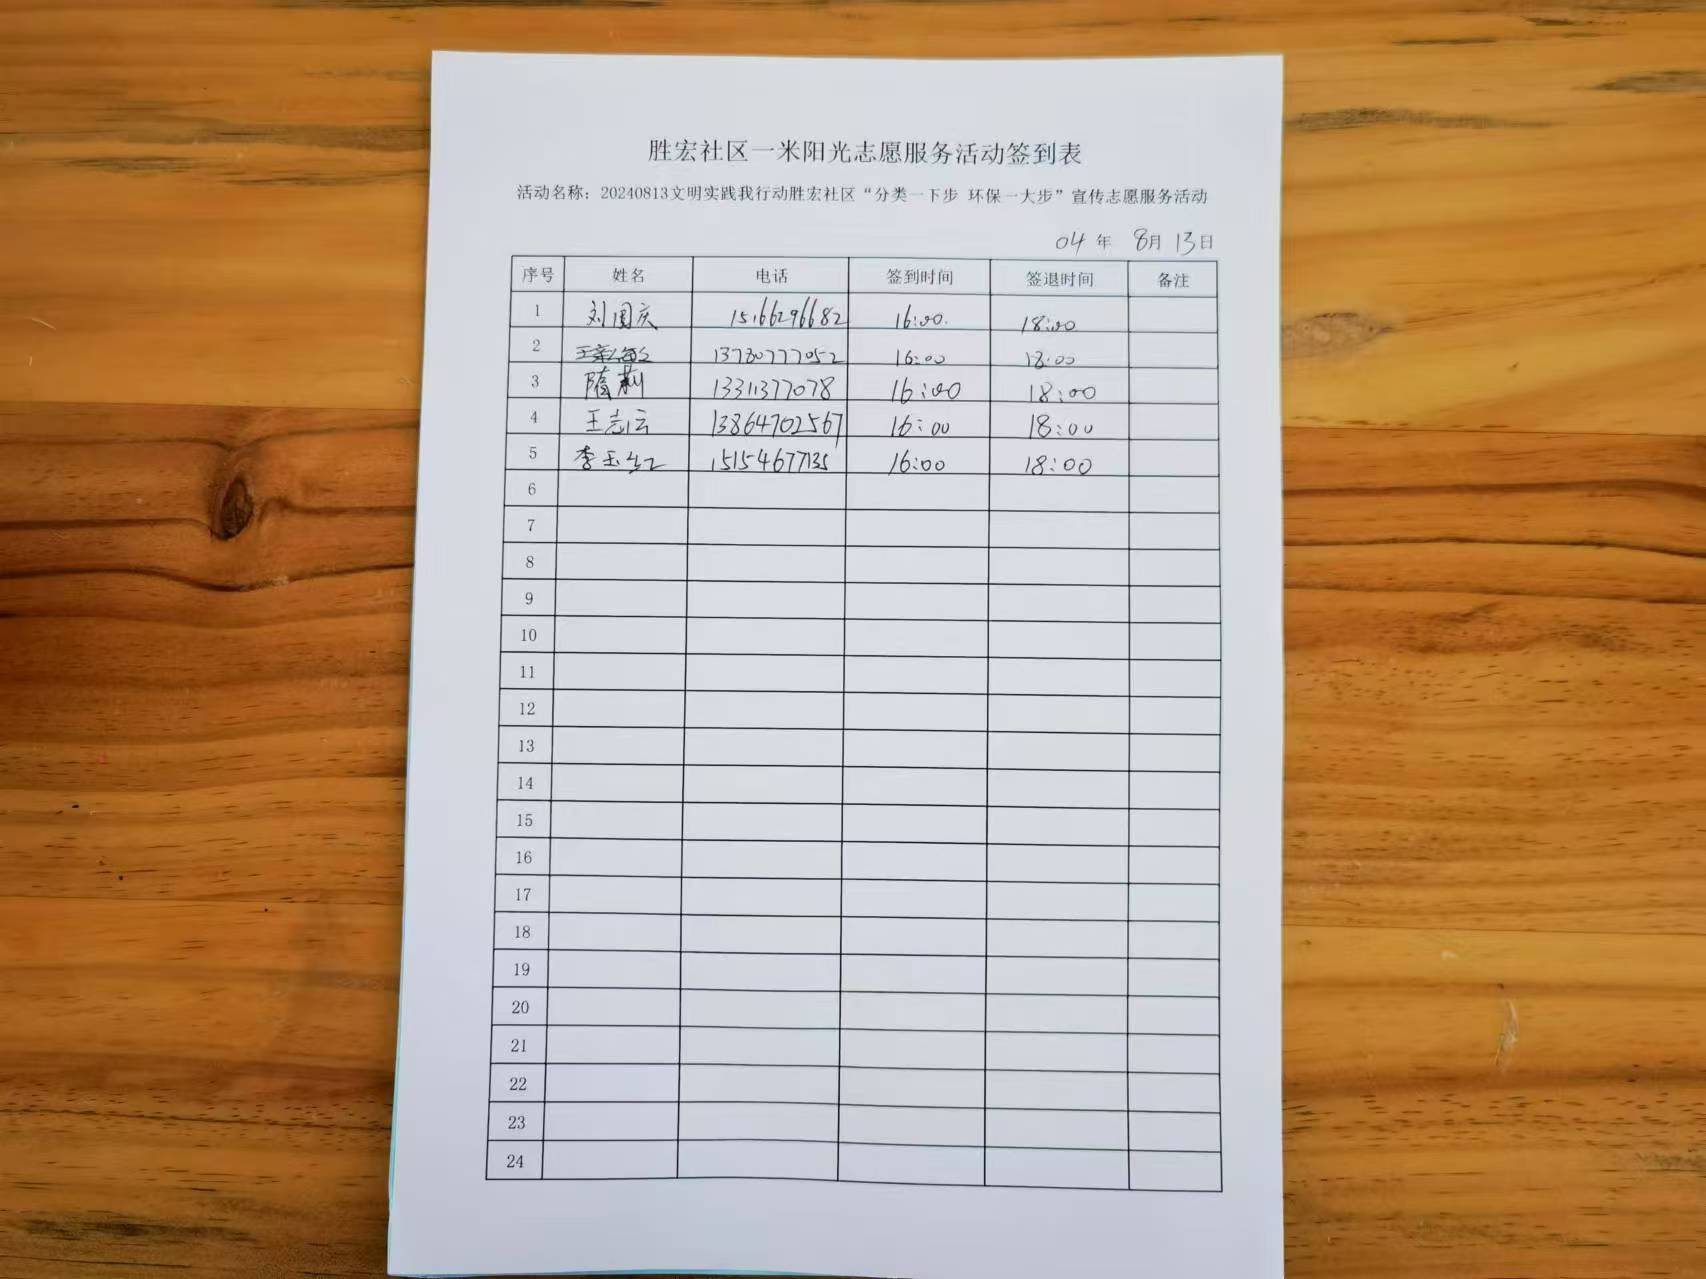 胜宏社区一米阳光志愿服务活动签到表
活动名称：20240813文明实践我行动胜宏社区“分类一下步 环保一大步”宣传志愿服务活动
04 年 8月 13日
序号 姓名 电话 签到时间 签退时间 备注
1 刘国庆 15166296682 16:00. 18:00
2 13780777052 16:00 18:00
3 隋莉 13311377078 16:00 18:00
4 王志云 13864702567 16:00 18:00
5 李玉红 15154677135 16:00 18:00
6
7
8
9
10
11
12
13
14
15
16
17
18
19
20
21
22
23
24